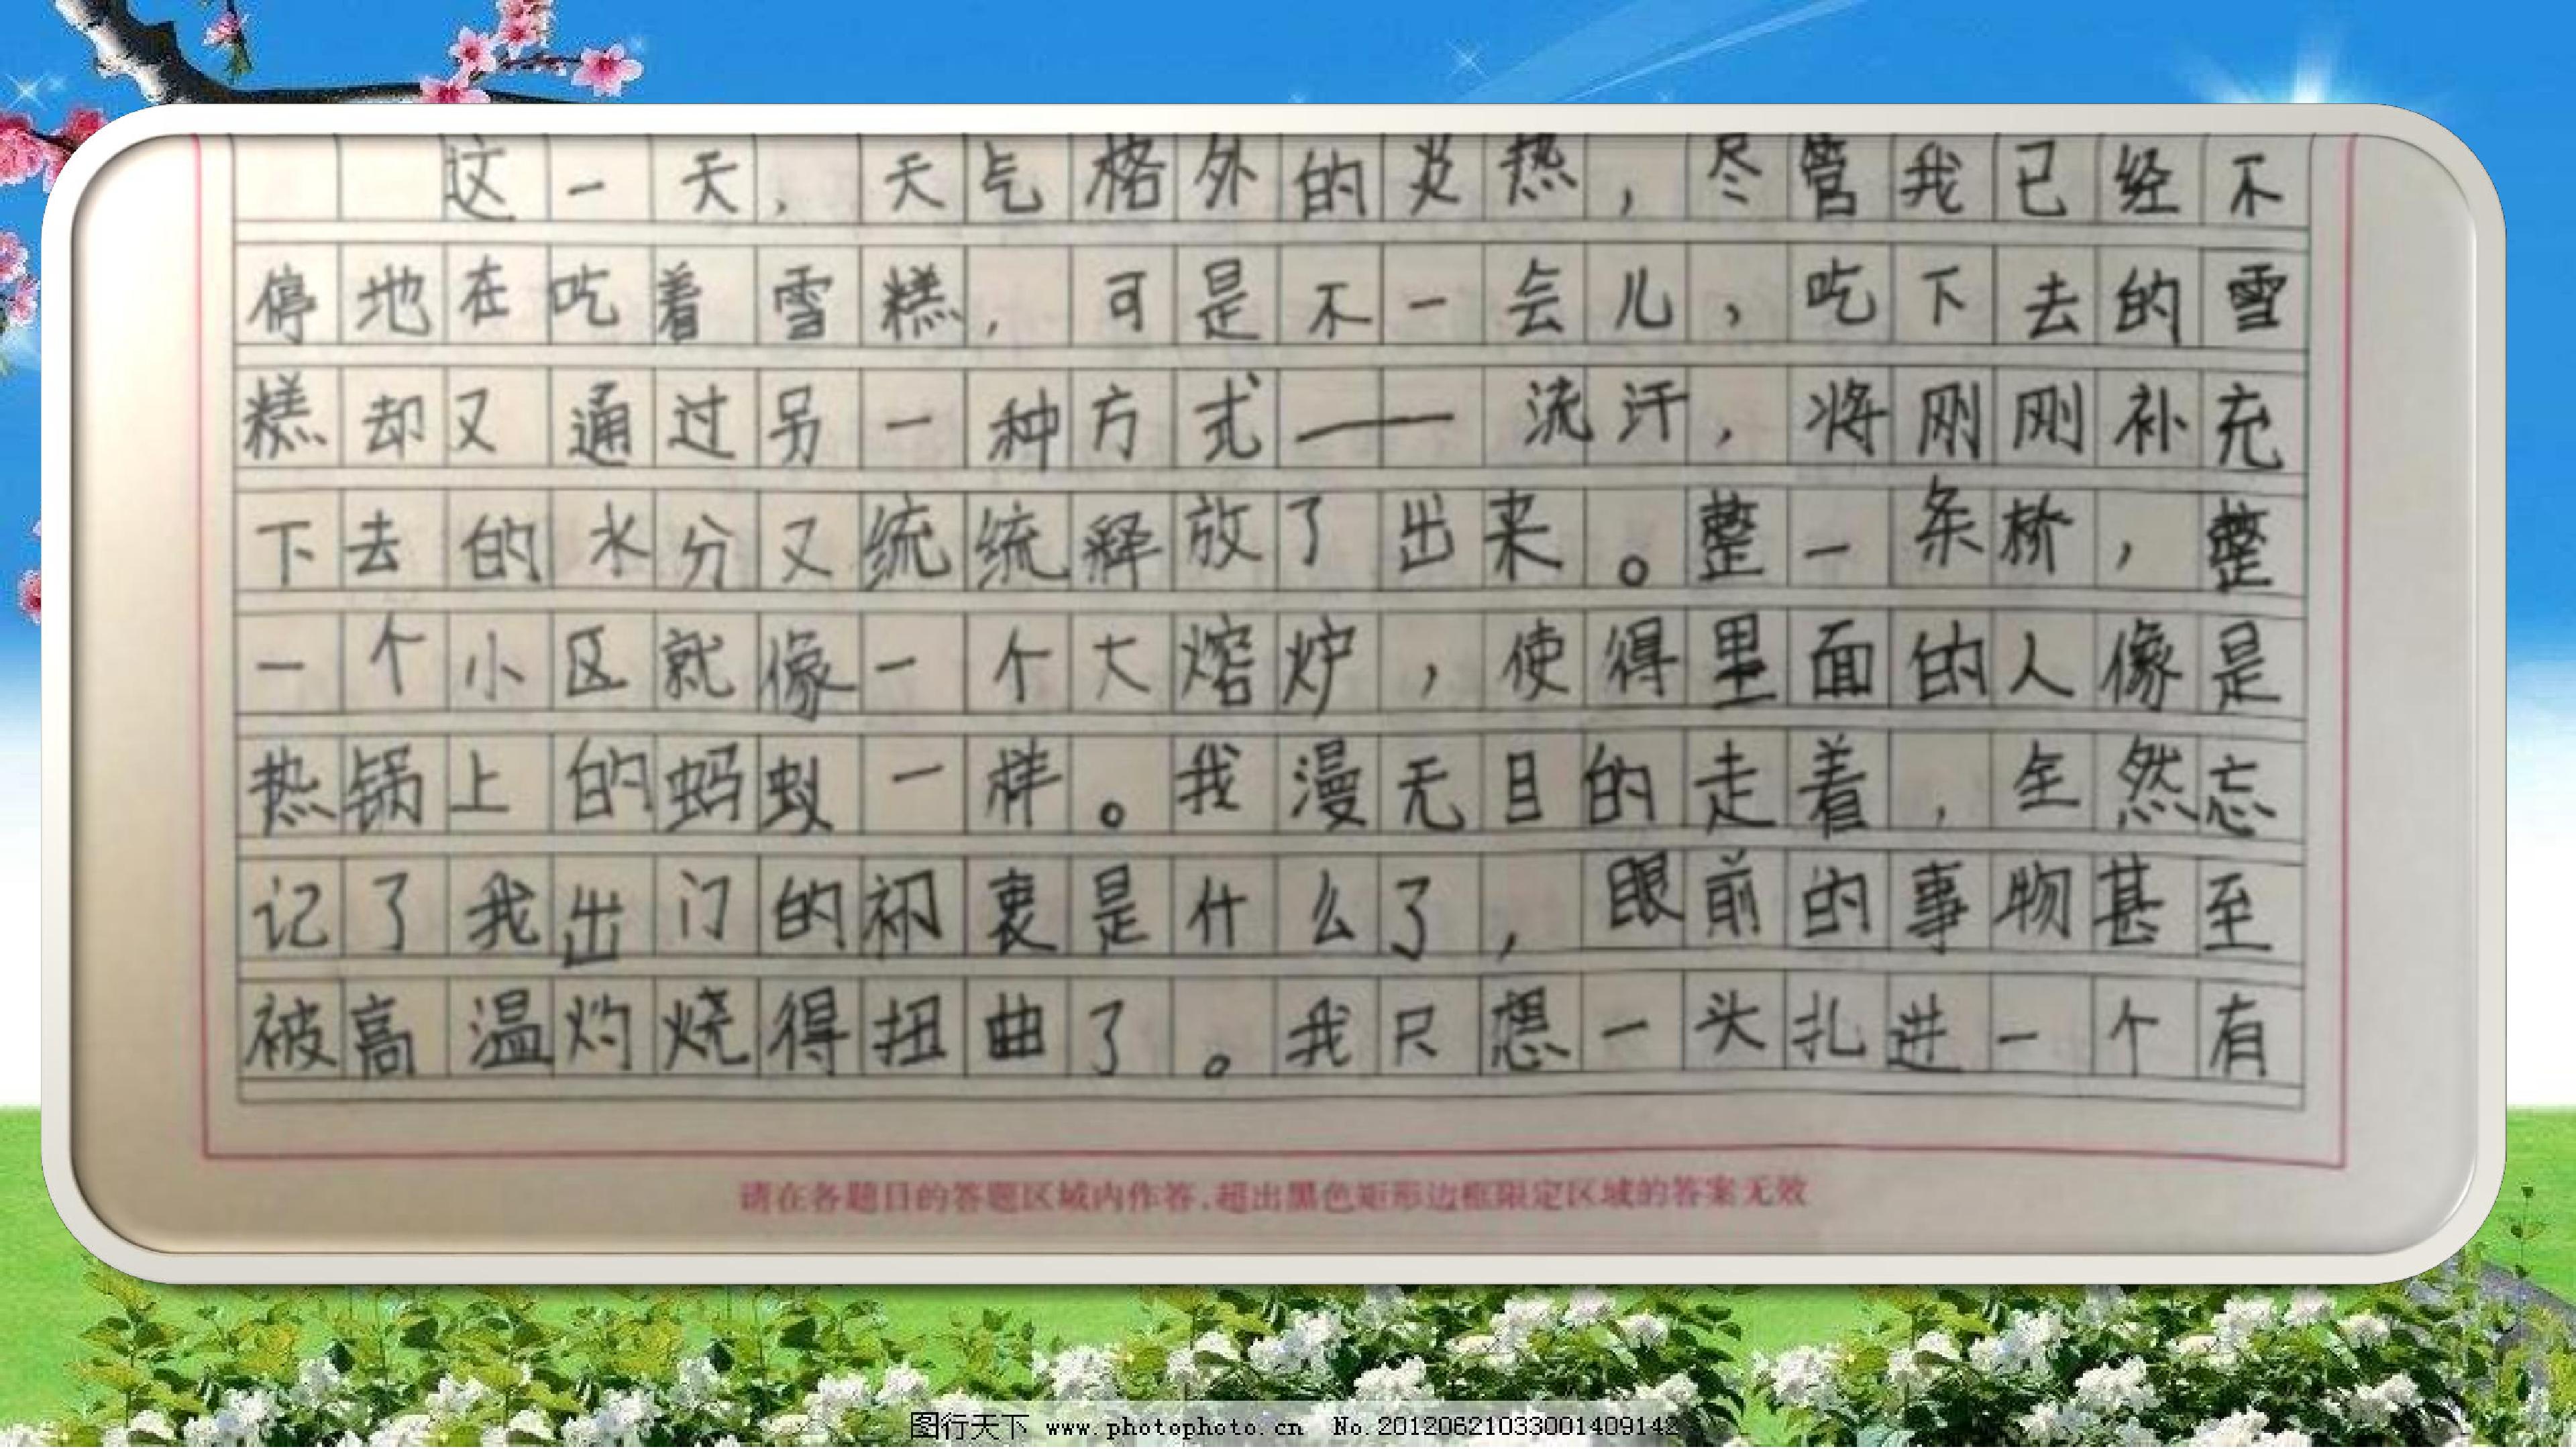 这一天，天气格外的炎热，尽管我已经不
停地在吃着雪糕，可是不一会儿，吃下去的雪
糕却又通过另一种方式——流汗，将刚刚补充
下去的水分又统统释放了出来。整一条桥，整
一个小区就像一个大熔炉，使得里面的人像是
热锅上的蚂蚁一样。我漫无目的走着，全然忘
记了我出门的初衷是什么了，眼前的事物甚至
被高温灼烧得扭曲了。我只想一头扎进一个有
请在各题目的答题区域内作答，超出黑色矩形边框限定区域的答案无效
图行天下 www.photophoto.cn No.20120621033001409142